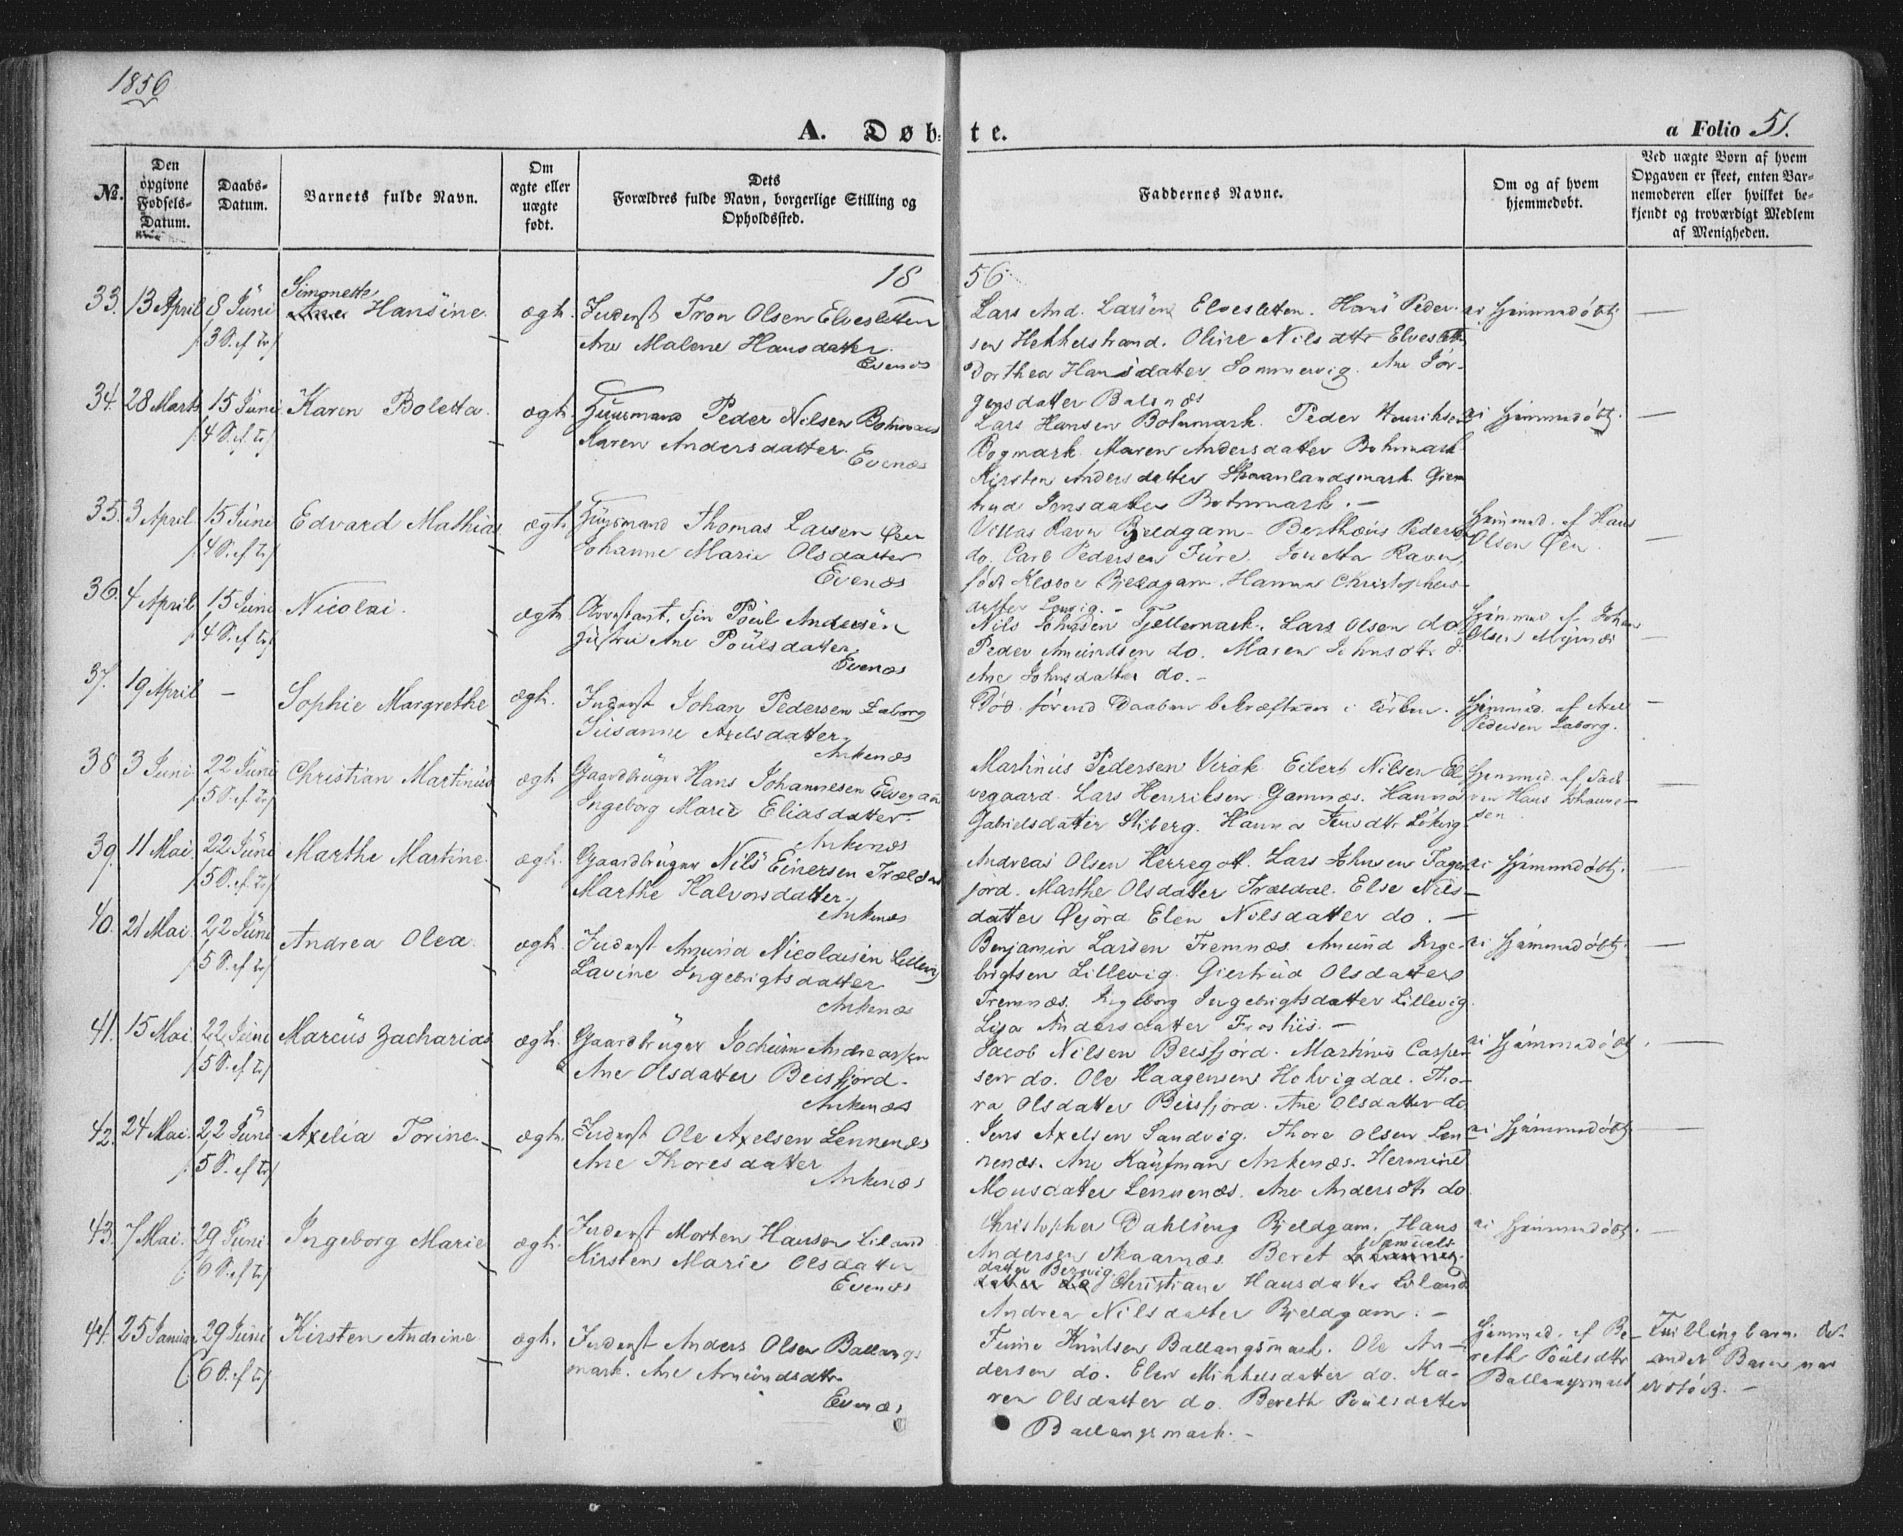 1856
A. Døbte.
a Folio 51.
No.
Den opgivne Fødsels-Datum.
Daabs-Datum.
Barnets fulde Navn.
Om ægte eller uægte født.
Dets Forældres fulde Navn, borgerlige Stilling og Opholdssted.
Faddernes Navne.
Om og af hvem hjemmedøbt.
Ved uægte Børn af hvem Opgaven er skeet, enten Barnemoderen eller hvilket bekjendt og troværdigt Medlem af Menigheden.
1856
33. 13 April 8 Juni Simonette Hansine ægte.
3 S. ef tr
Inderst Tron Olsen Elvesletten
Ane Malene Hansdatter
Evenæs
Lars And. Larsen Elvesletten. Hans Peder-
sen Hekkelstrand. Oline Nilsdttr Elveslett
Dorthea Hansdatter Sommervig. Ane Jør-
gensdatter Balsnæs
ei Hjemmedøbt —
34. 28 Marts 15 Juni Karen Boletta ægte
4 S. ef tr
Huusmand Peder Nilsen Botnmark
Karen Andersdatter
Evenæs
Lars Hansen Botnmark. Peder Henriksen
Bogmark. Maren Andersdatter Botnmark
Kirsten Andersdatter Skaanlandsmark. Gjer
trud Jensdatter Botnmark. —
ei Hjemmedøbt. —
35. 3 April 15 Juni Edvard Mathias ægte
4 S. ef tr
Huusmand Thomas Larsen Øen
Johanne Marie Olsdatter
Evenæs
Villas Ravn Bjeldgam. Berthæus Peders
do. Carl Pedersen Fure. Ravn,
født Klæboe Bjeldgam. Hanna Christophers
datter
Hjemmed. af Hans
Olsen Øen. —
36. 4 April 15 Juni Nicolai ægte
4 S. ef tr
Fin Poul Andersen
Ane Poulsdatter
Evenæs
Nils Johnsen Fjellemark. Lars Olsen do
Peder Amundsen do. Maren Johnsdtr d.
Ane Johnsdatter do. —
Hjemmed af Johan
Olsen Myrnæs —
37. 19 April — Sophie Margrethe ægte.
Inderst Johan Pedersen Laborg
Susanne Axelsdatter
Ankenæs
Død førend Daaben bekræftedes i Kirken.
Hjemmed. af Axel
Pedersen Laborg. —
38 3 Juni 22 Juni Christian Martinus ægte
5 S. ef tr
Gaardbruger Hans Johannesen Elvegaard
Ingeborg Marie Eliasdatter
Ankenæs
Martinus Pedersen Virak. Eilert Nilsen El
vegaard. Lars Henriksen Gamnæs. Hanna
Gabrielsdatter Stiberg. Hanna Jensdtr Lekvig.
Hjemmed. af Fade
ren Hans Johanne-
sen —
39. 11 Mai. 22 Juni Marthe Martine ægte.
5 S. ef tr
Gaardbruger Nils Einersen Trældal
Marthe Halvorsdatter
Ankenæs
Andreas Olsen Herregott. Lars Johnsen Fager
fjord. Marthe Olsdatter Trældal. Else Nils-
datter Øyjord Elen Nilsdatter do. —
ei Hjemmedøbt. —
40. 21 Mai 22 Juni Andrea Olea. ægte.
5 S. ef tr
Inderst Amund Nicolaisen Lillevig
Lavine Ingebrigtsdatter
Ankenæs
Benjamin Larsen Fremnæs. Amund Inge-
brigtsen Lillevig. Giertrud Olsdatter
Fremnæs. Ingeborg Ingebrigtsdatter Lillevig.
Lisa Andersdatter Froshus. —
ei Hjemmedøbt. —
41. 15 Mai 22 Juni Marcus Zacharias ægte.
5 S. ef tr
Gaardbruger Jochum Andreassen
Ane Olsdatter Beisfjord.
Ankenæs
Jacob Nilsen Beisfjord. Martinus Casper
sen do. Ole Haagensen Holvigdal. Tho-
ra Olsdatter Beisfjord. Ane Olsdatter do
ei Hjemmedøbt. —
42. 24 Mai. 22 Juni Axelia Torine. ægte.
5 S. ef tr
Inderst Ole Axelsen Lennenæs
Ane Thoresdatter
Ankenæs
Jens Axelsen Sandvig. Thore Olsen Len-
nenæs. Ane Kaufman Ankenæs. Hermine
Monsdatter Lennenæs. Ane Andersdtr do
ei Hjemmedøbt —
43. 7 Mai. 29 Juni Ingeborg Marie ægte.
6 S. ef tr
Inderst Morten Hansen Liland
Kirsten Marie Olsdatter
Evenæs
Christopher Dahlseng Bjeldgam. Hans
Andersen Skaarnæs. Beret Samuels-
datter Bervig. Christiane Hansdatter Liland
Andrea Nilsdatter Bjeldgam. —
ei Hjemmedøbt. —
44. 25 Januar 29 Juni Kirsten Andrine ægte.
6 S. ef tr
Inderst Anders Olsen Ballangs
mark. Ane Amundsdtr.
Evenæs
Knutsen Ballangsmark. Ole An-
dersen do. Elen Mikkelsdatter do. Ka-
ren Olsdatter do. Bereth Poulsdatter
Ballangsmark. —
Hjemmed. af Be-
reth Poulsdtr
Ballangsmark
Tvillingbarn. Det
andet Barn var
dødfødt. —